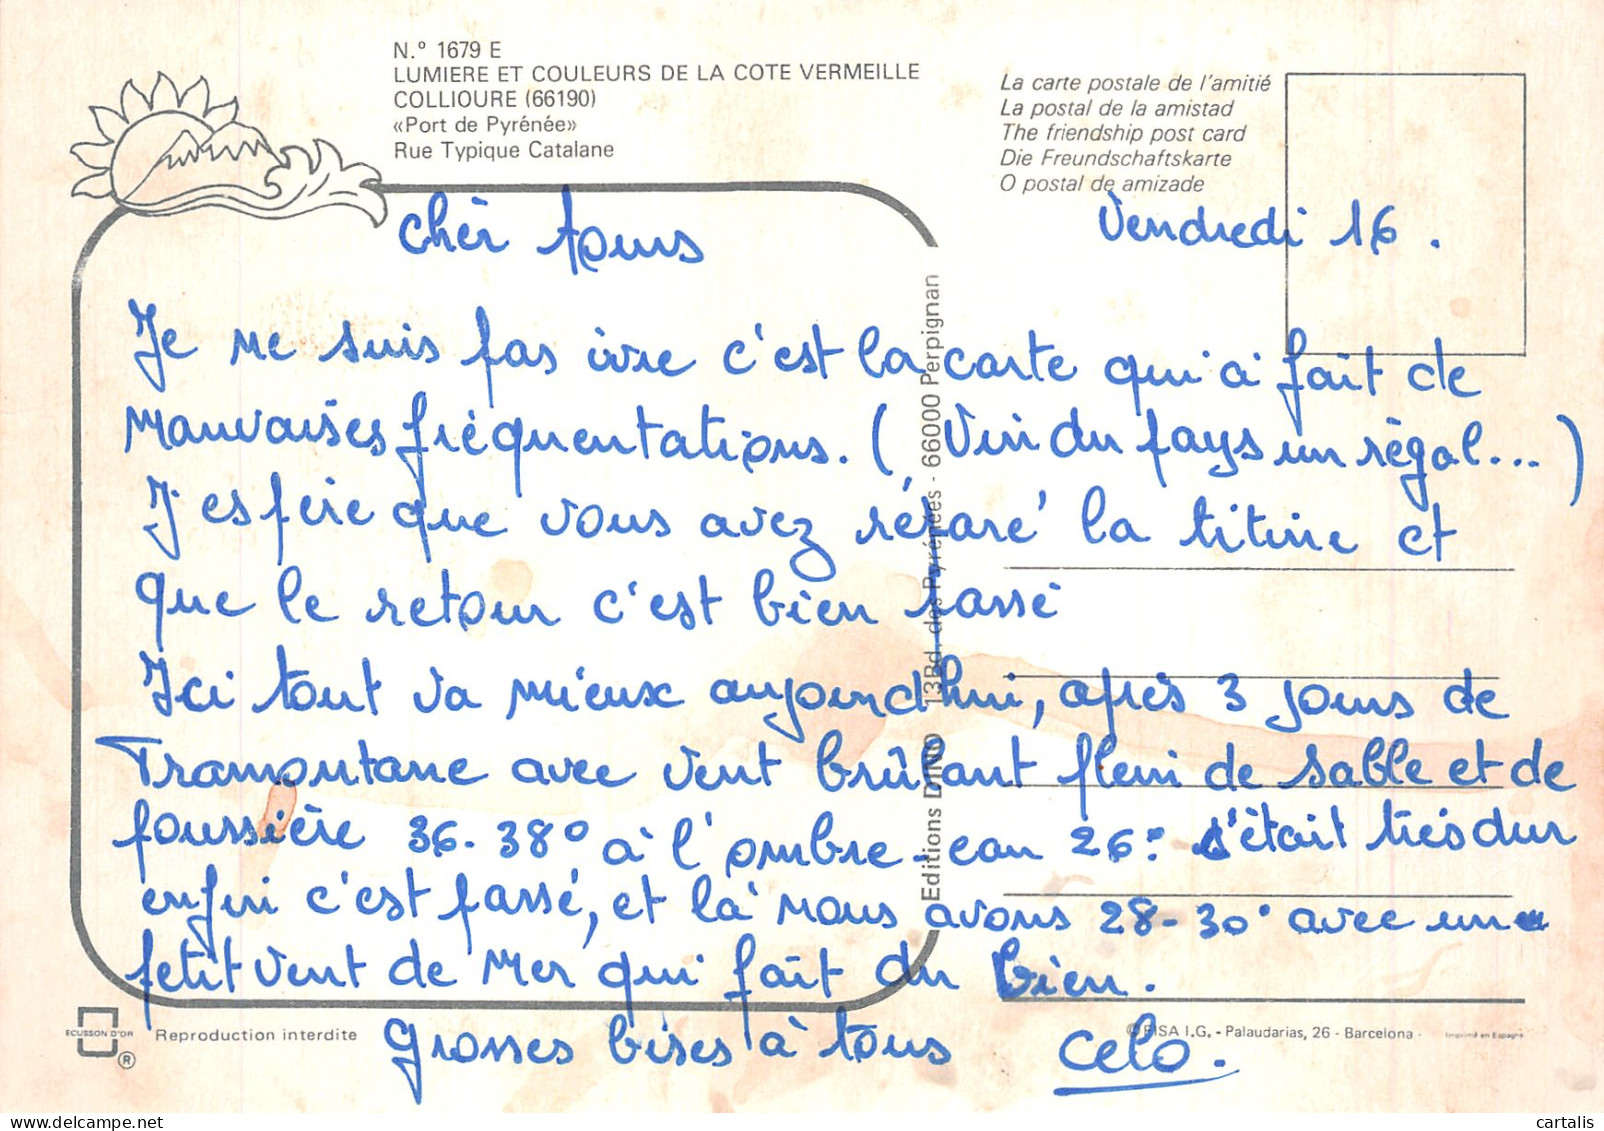 N.° 1679 E
LUMIERE ET COULEURS DE LA COTE VERMEILLE
COLLIOURE (66190)
«Port de Pyrénée»
Rue Typique Catalane
La carte postale de l'amitié
La postal de la amistad
The friendship post card
Die Freundschaftskarte
O postal de amizade
Vendredi 16.
Chèr tous
Je ne suis pas ivre c'est la carte qui a fait de
mauvaises fréquentations. (Vin du pays un régal...)
J'espère que vous avez réparé la titine et
que le retour c'est bien passé
Ici tout va mieux aujourd'hui, après 3 jours de
Tramontane avec vent brûlant plein de sable et de
poussière 36-38° à l'ombre - eau 26° c'était très dur
enfin c'est passé, et là nous avons 28-30° avec un
petit vent de mer qui fait du bien.
Grosses bises à tous Celo.
Editions DINO 13Bd. des Pyrénées - 66000 Perpignan
ECUSSON D'OR
®
Reproduction interdite
© FISA I.G. - Palaudarias, 26 - Barcelona
Imprimé en Espagne
cartalis